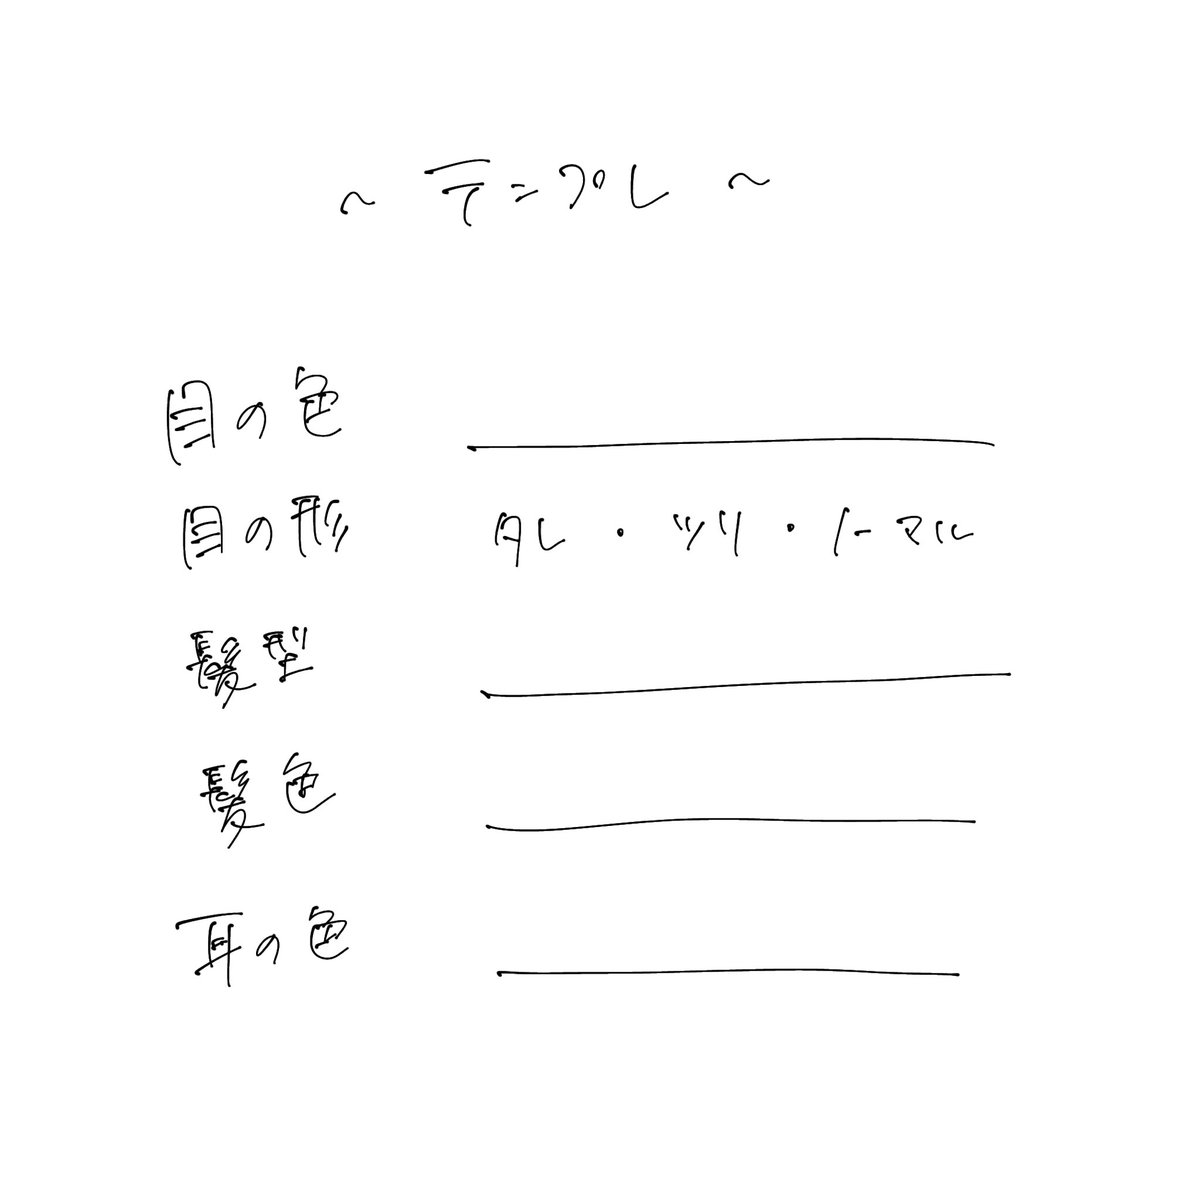 ～ テンプレ ～
目の色
目の形 タレ・ツリ・ノーマル
髪型
髪色
耳の色